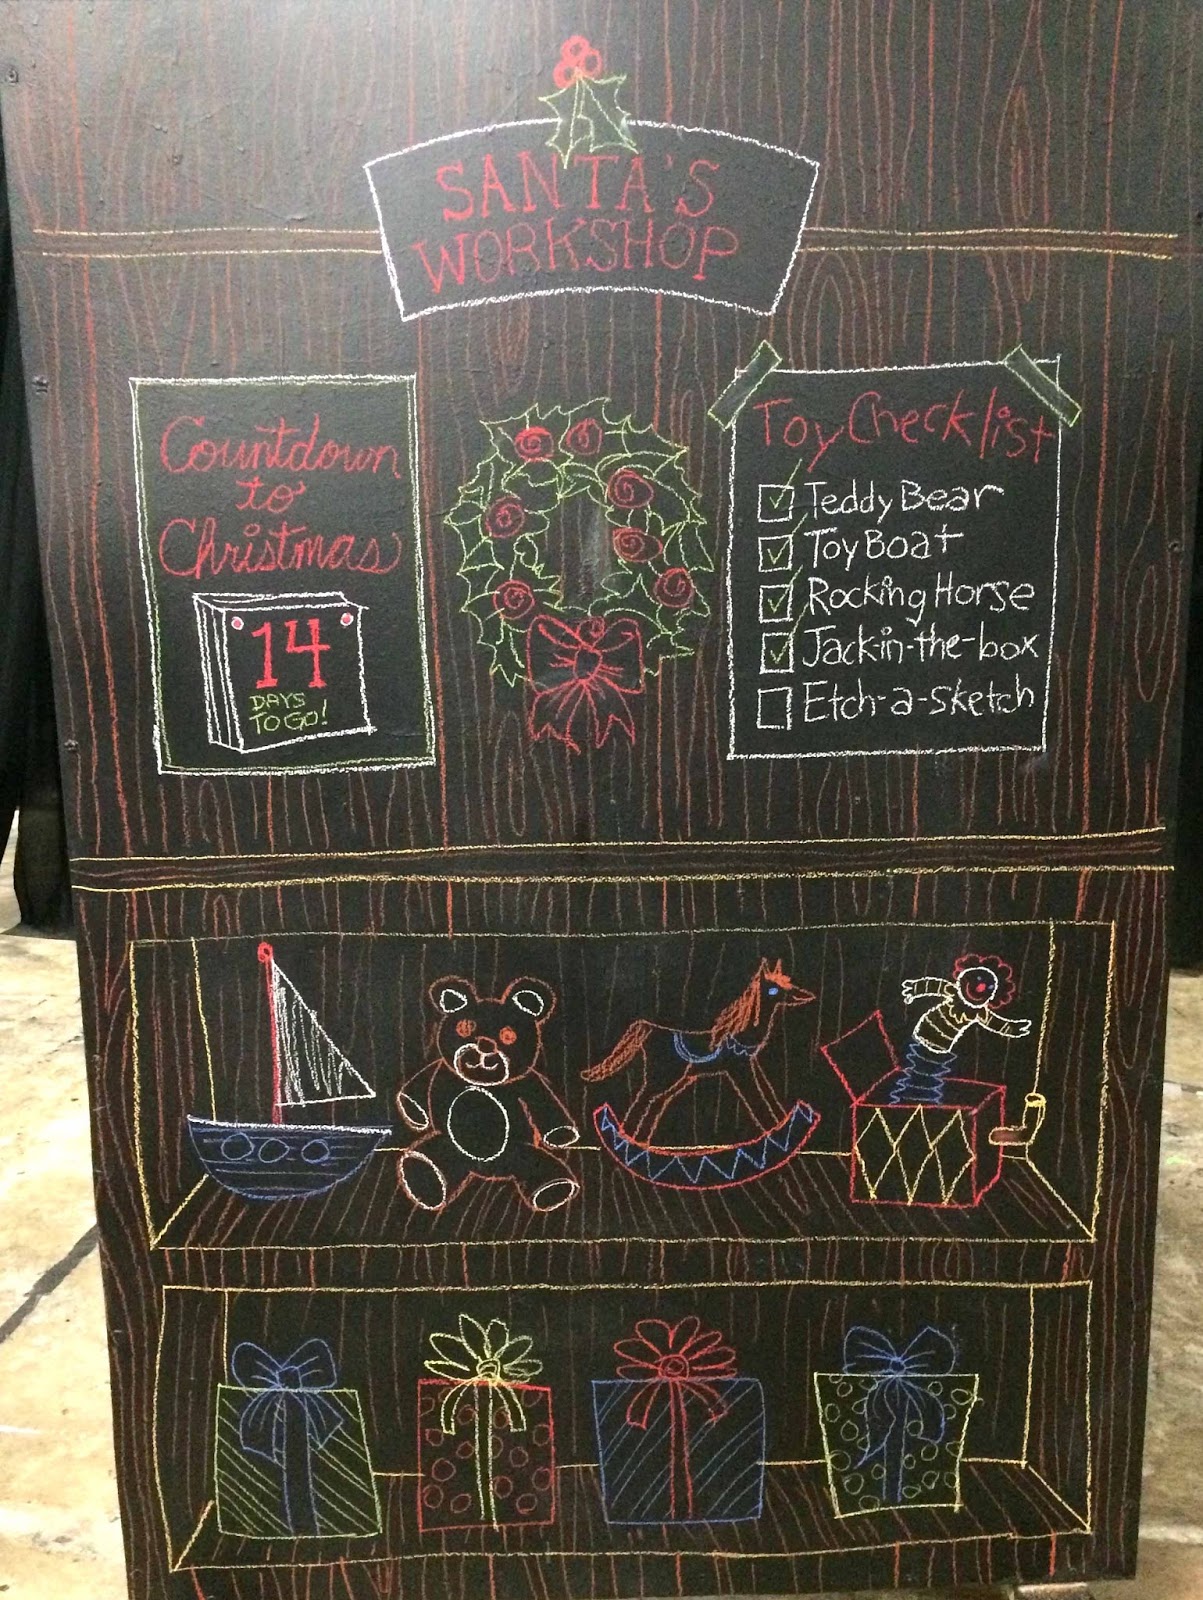 SANTA'S
WORKSHOP
Countdown
to
Christmas
14
DAYS
TO GO!
Toy Checklist
Teddy Bear
Toy Boat
Rocking Horse
Jack-in-the-box
Etch-a-sketch